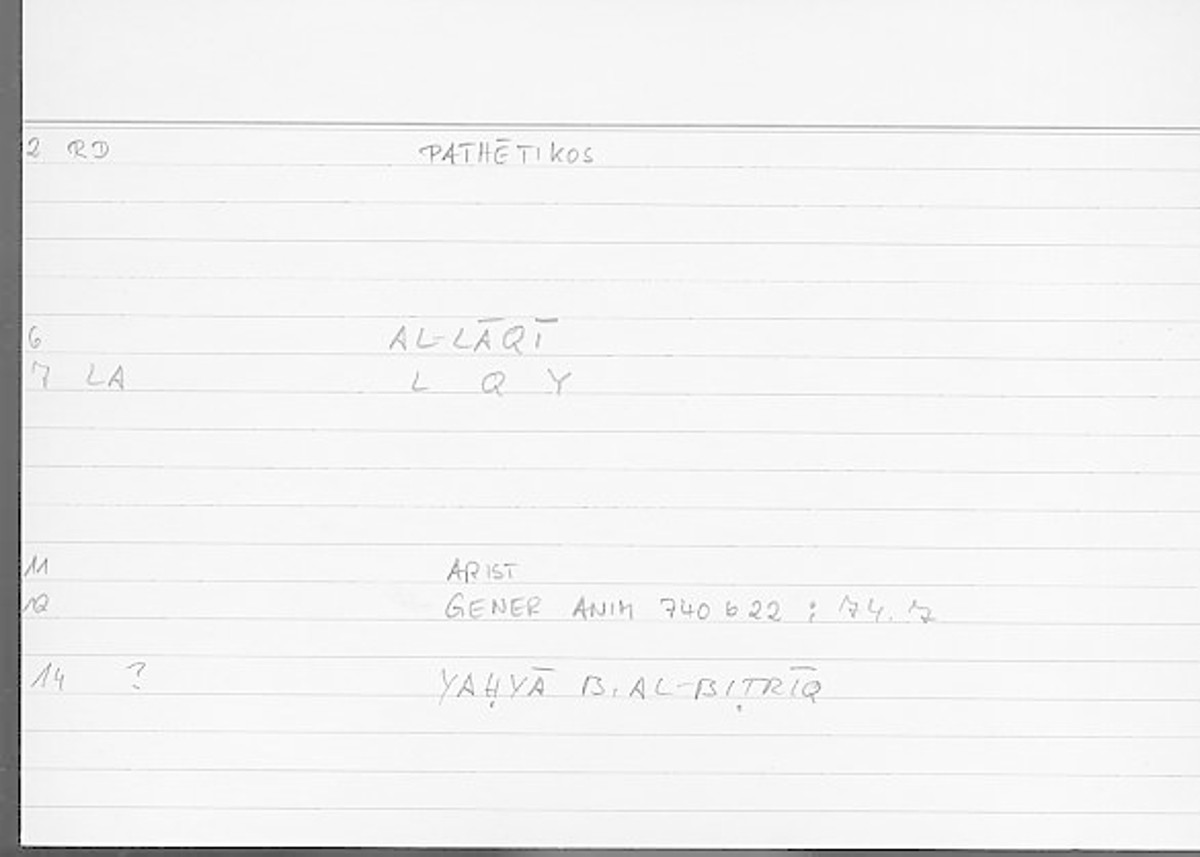 2 RD PATHĒTIKOS
6 AL-LĀQĪ
7 LA L Q Y
11 ARIST
12 GENER ANIM 740 b 22 ; 74.7
14 ? YAḤYĀ B. AL-BIṬRĪQ